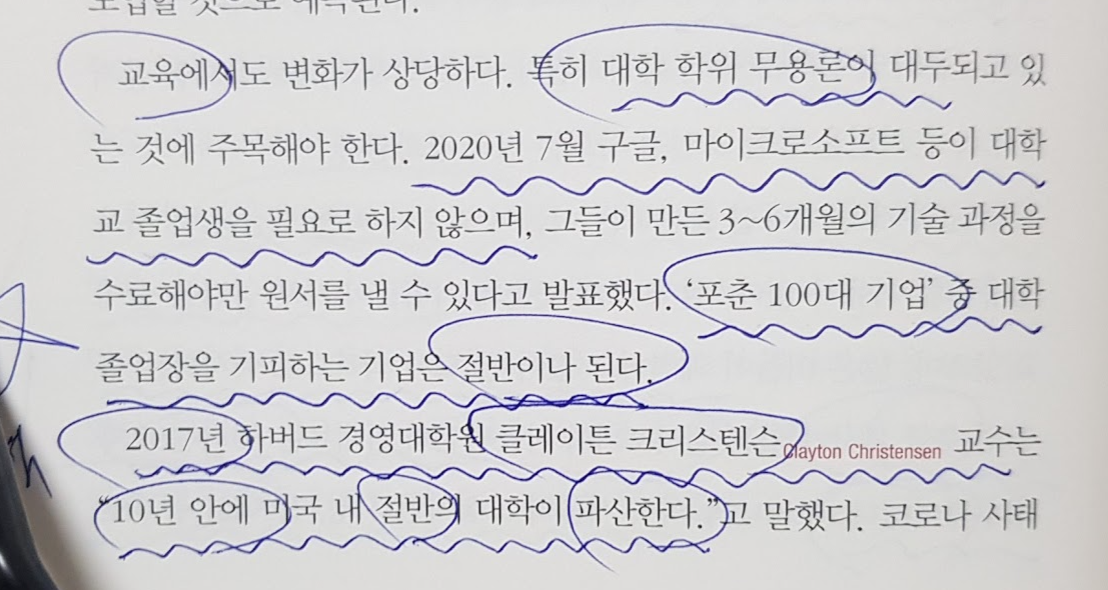 교육에서도 변화가 상당하다. 특히 대학 학위 무용론이 대두되고 있
는 것에 주목해야 한다. 2020년 7월 구글, 마이크로소프트 등이 대학
교 졸업생을 필요로 하지 않으며, 그들이 만든 3~6개월의 기술 과정을
수료해야만 원서를 낼 수 있다고 발표했다. ‘포춘 100대 기업’ 중 대학
졸업장을 기피하는 기업은 절반이나 된다.
2017년 하버드 경영대학원 클레이튼 크리스텐슨Clayton Christensen 교수는
“10년 안에 미국 내 절반의 대학이 파산한다.”고 말했다. 코로나 사태